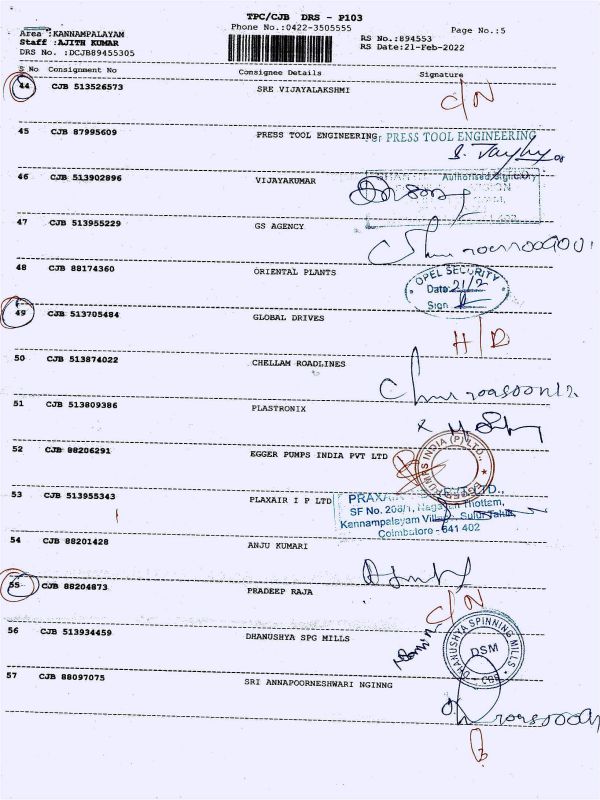 TPC/CJB DRS - P103
Phone No.:0422-3505555
Page No.:5
Area :KANNAMPALAYAM
Staff :AJITH KUMAR
DRS No. :DCJB89455305
RS No.:894553
RS Date:21-Feb-2022
S No Consignment No Consignee Details Signature
44 CJB 513526573 SRE VIJAYALAKSHMI C/N
45 CJB 87995609 PRESS TOOL ENGINEERING For PRESS TOOL ENGINEERING
Authorised Signatory
46 CJB 513902896 VIJAYAKUMAR
47 CJB 513955229 GS AGENCY
48 CJB 88174360 ORIENTAL PLANTS
OPEL SECURITY
Date: 21/2
Sign
49 CJB 513705484 GLOBAL DRIVES H/D
50 CJB 513874022 CHELLAM ROADLINES
51 CJB 513809386 PLASTRONIX
52 CJB 88206291 EGGER PUMPS INDIA PVT LTD
EGGER PUMPS INDIA (P) LTD.,
53 CJB 513955343 PLAXAIR I P LTD
PRAXAIR LTD.,
SF No. 208/1, Nagavan Thottam,
Kannampalayam Village, Sulur Taluk,
Coimbatore - 641 402
54 CJB 88201428 ANJU KUMARI
55 CJB 88204873 PRADEEP RAJA C/N
56 CJB 513934459 DHANUSHYA SPG MILLS
DHANUSHYA SPINNING MILLS
DSM
CBE
57 CJB 88097075 SRI ANNAPOORNESHWARI NGINNG